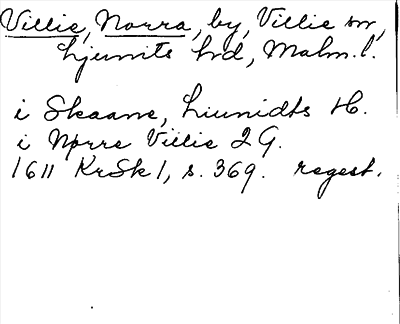 Villie, Norra, by, Villie sn,
Ljunits hd, Malm. l.
i Skaane, Liunidts H.
i Nørre Villie 2 G.
1611 KrSk 1, s. 369. regest.